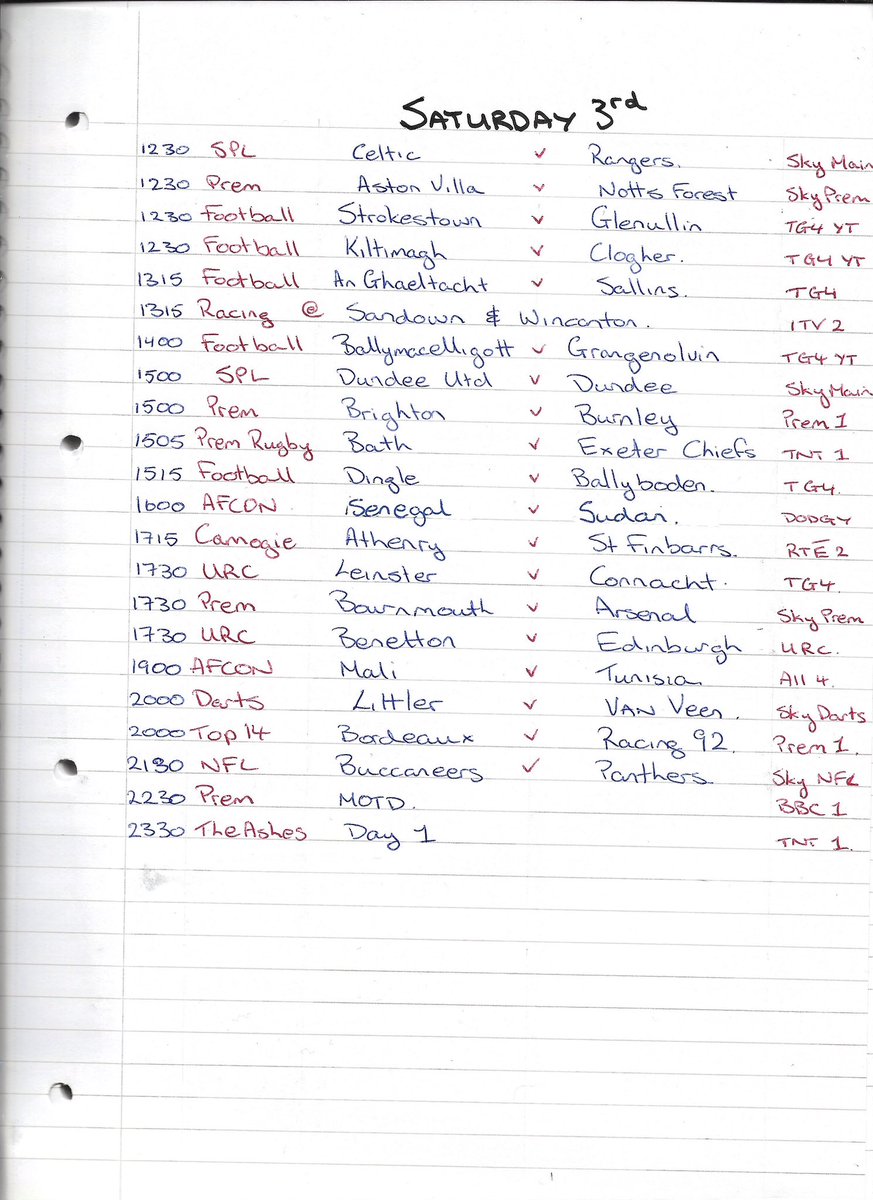 SATURDAY 3rd
1230 SPL Celtic v Rangers. Sky Main
1230 Prem Aston Villa v Notts Forest Sky Prem
1230 Football Strokestown v Glenullin TG4 YT
1230 Football Kiltimagh v Clogher. TG4 YT
1315 Football An Ghaeltacht v Sallins. TG4
1315 Racing @ Sandown & Wincanton. ITV 2
1400 Football Ballymacelligott v Grangenolvin TG4 YT
1500 SPL Dundee Utd v Dundee Sky Main
1500 Prem Brighton v Burnley Prem 1
1505 Prem Rugby Bath v Exeter Chiefs TNT 1
1515 Football Dingle v Ballyboden. TG4.
1600 AFCON Senegal v Sudan. DODGY
1715 Camogie Athenry v St Finbarrs. RTÉ 2
1730 URC Leinster v Connacht. TG4.
1730 Prem Bournmouth v Arsenal Sky Prem
1730 URC Benetton v Edinburgh URC.
1900 AFCON Mali v Tunisia All 4.
2000 Darts Littler v VAN Veen. Sky Darts
2000 Top 14 Bordeaux v Racing 92. Prem 1.
2130 NFL Buccaneers v Panthers Sky NFL
2230 Prem MOTD. BBC 1
2330 The Ashes Day 1 TNT 1.